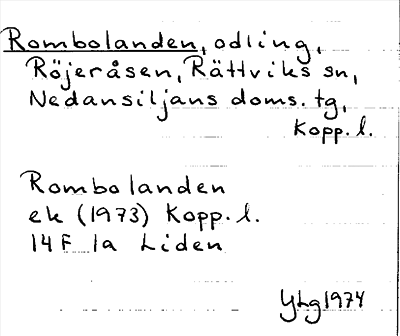 Rombolanden, odling,
Röjeråsen, Rättviks sn,
Nedansiljans doms. tg,
Kopp. l.
Rombolanden
ek (1973) Kopp. l.
14F 1a Liden
YLg 1974